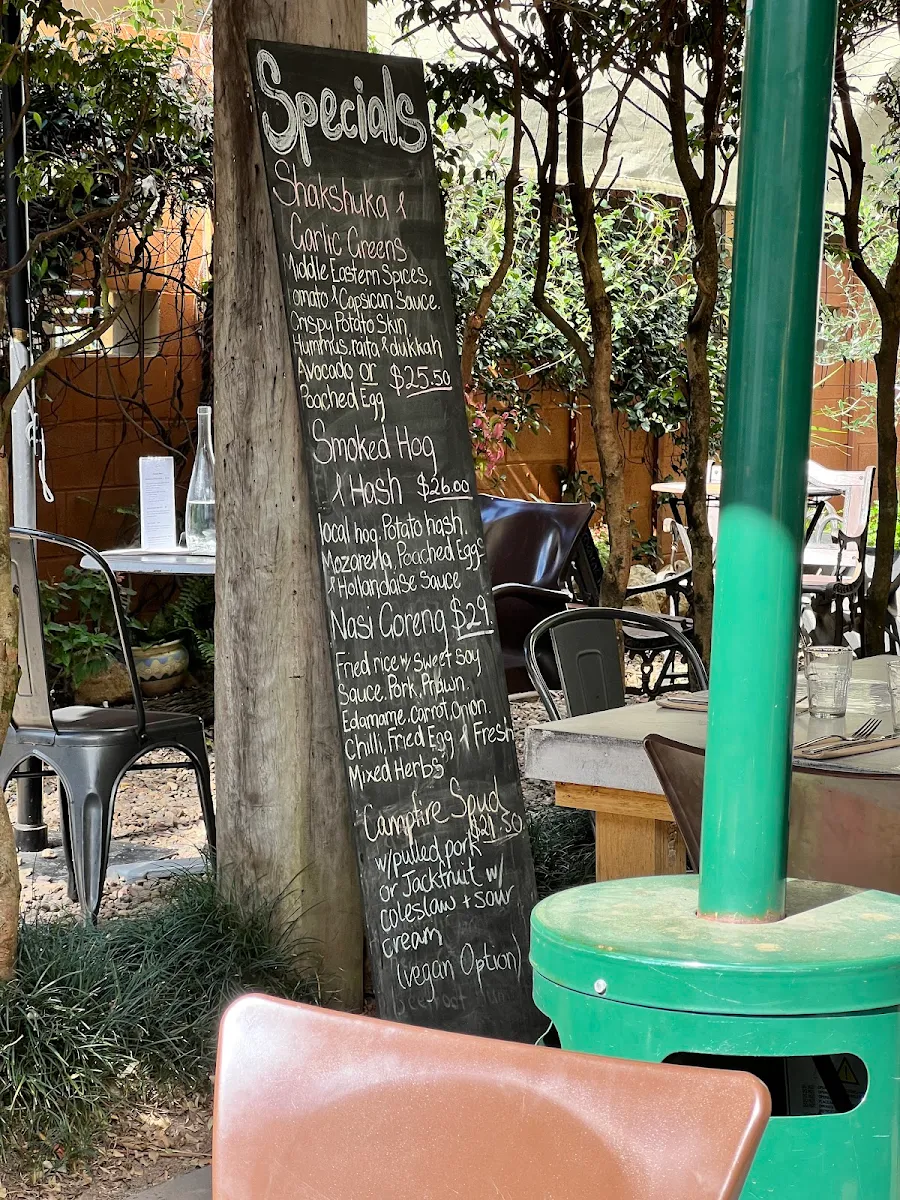 Specials
Shakshuka &
Garlic Greens
Middle Eastern Spices,
Tomato & Capsican Sauce.
Crispy Potato Skin,
Hummus, raita & dukkah
Avocado or $25.50
Poached Egg
Smoked Hog
& Hash $26.00
local hog. Potato hash.
Mozarella, Poached Eggs
& Hollandaise Sauce
Nasi Goreng $29.
Fried rice w/ sweet soy
Sauce. Pork, Prawn.
Edamame. Carrot, Onion.
Chilli, Fried Egg & Fresh
Mixed Herbs
Campfire Spud
$21.50
w/pulled pork
or Jackfruit w/
coleslaw + sour
cream
(vegan Option)